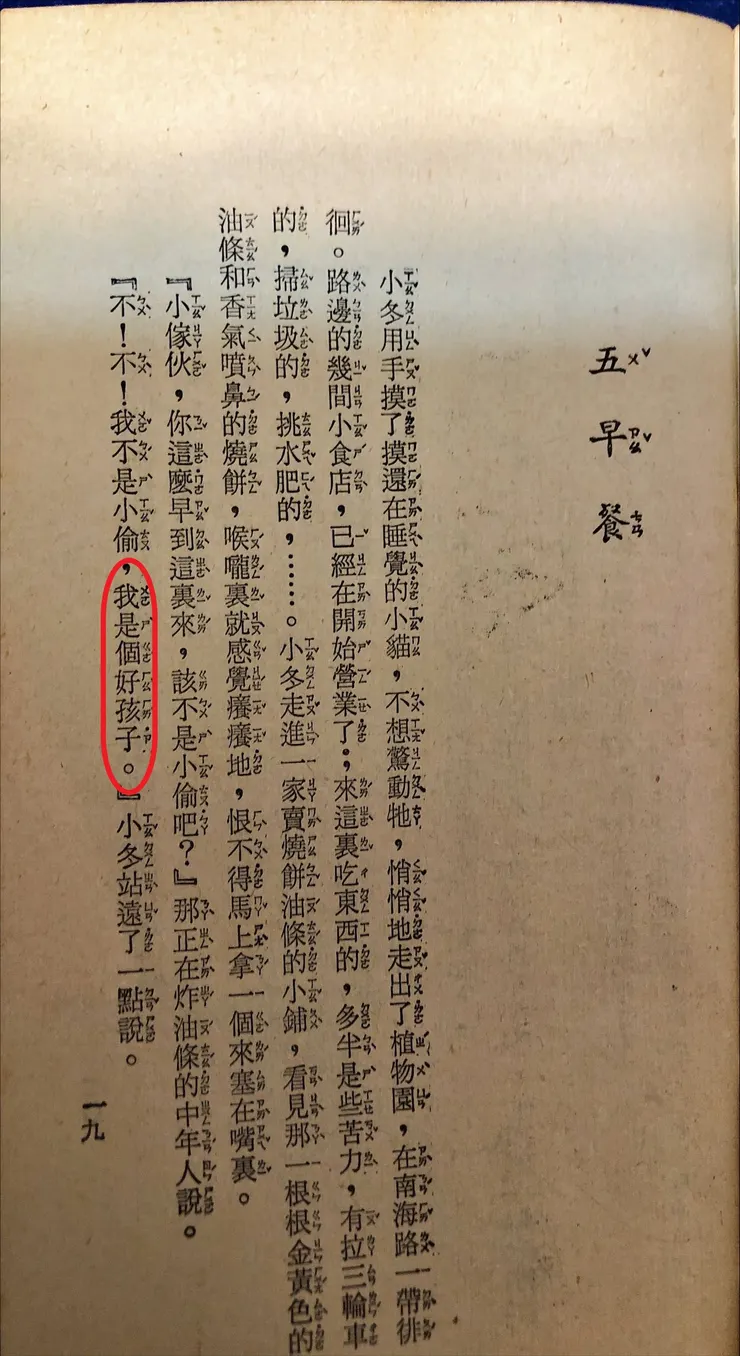 五 早餐
小冬用手摸了摸還在睡覺的小貓，不想驚動牠，悄悄地走出了植物園，在南海路一帶徘
徊。路邊的幾間小食店，已經在開始營業了；來這裏吃東西的，多半是些苦力，有拉三輪車
的，掃垃圾的，挑水肥的，……。小冬走進一家賣燒餅油條的小鋪，看見那一根根金黃色的
油條和香氣噴鼻的燒餅，喉嚨裏就感覺癢癢地，恨不得馬上拿一個來塞在嘴裏。
『小傢伙，你這麼早到這裏來，該不是小偷吧？』那正在炸油條的中年人說。
『不！不！我不是小偷，我是個好孩子。』小冬站遠了一點說。
一九